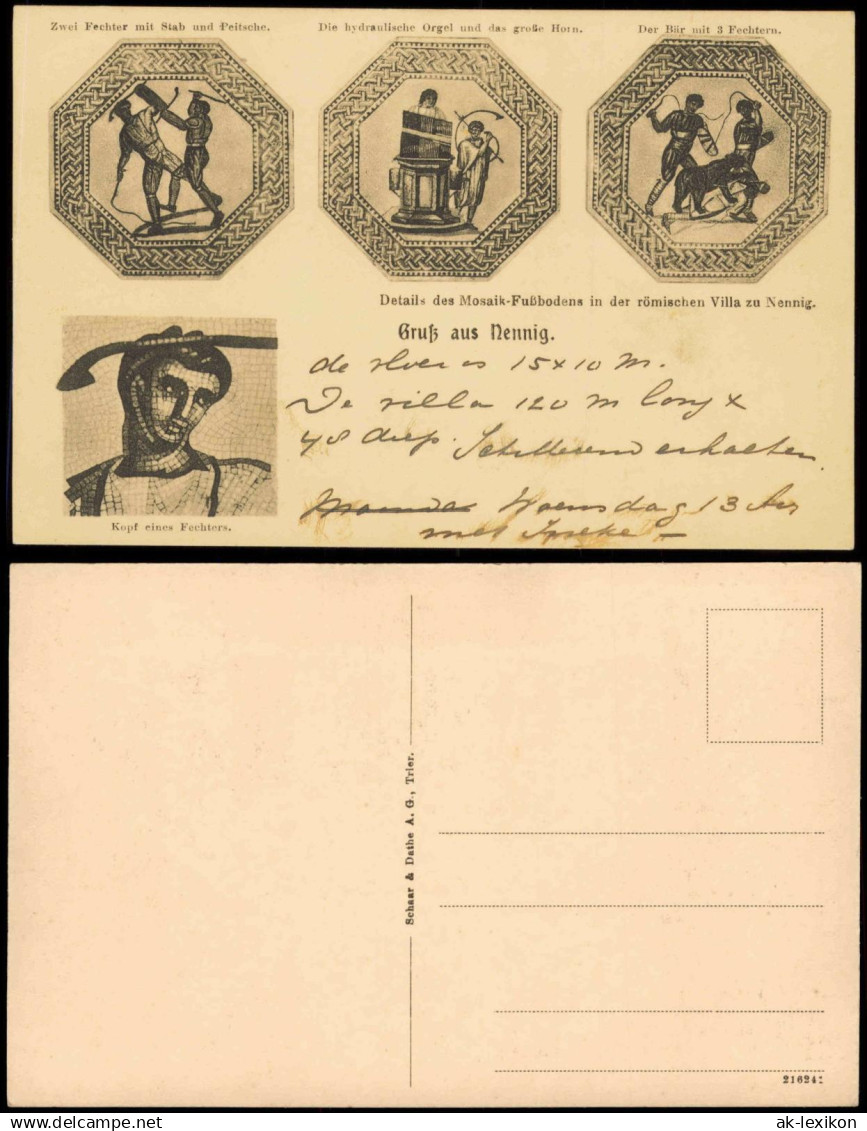 Zwei Fechter mit Stab und Peitsche.
Die hydraulische Orgel und das große Horn.
Der Bär mit 3 Fechtern.
Details des Mosaik-Fußbodens in der römischen Villa zu Nennig.
Gruß aus Nennig.
de vloer is 15 x 10 m.
De villa 120 m lang x
48 diep. Schitterend erhalten.
Woensdag 13
met
Kopf eines Fechters.
Schaar & Dathe A. G., Trier.
21624
ak-lexikon